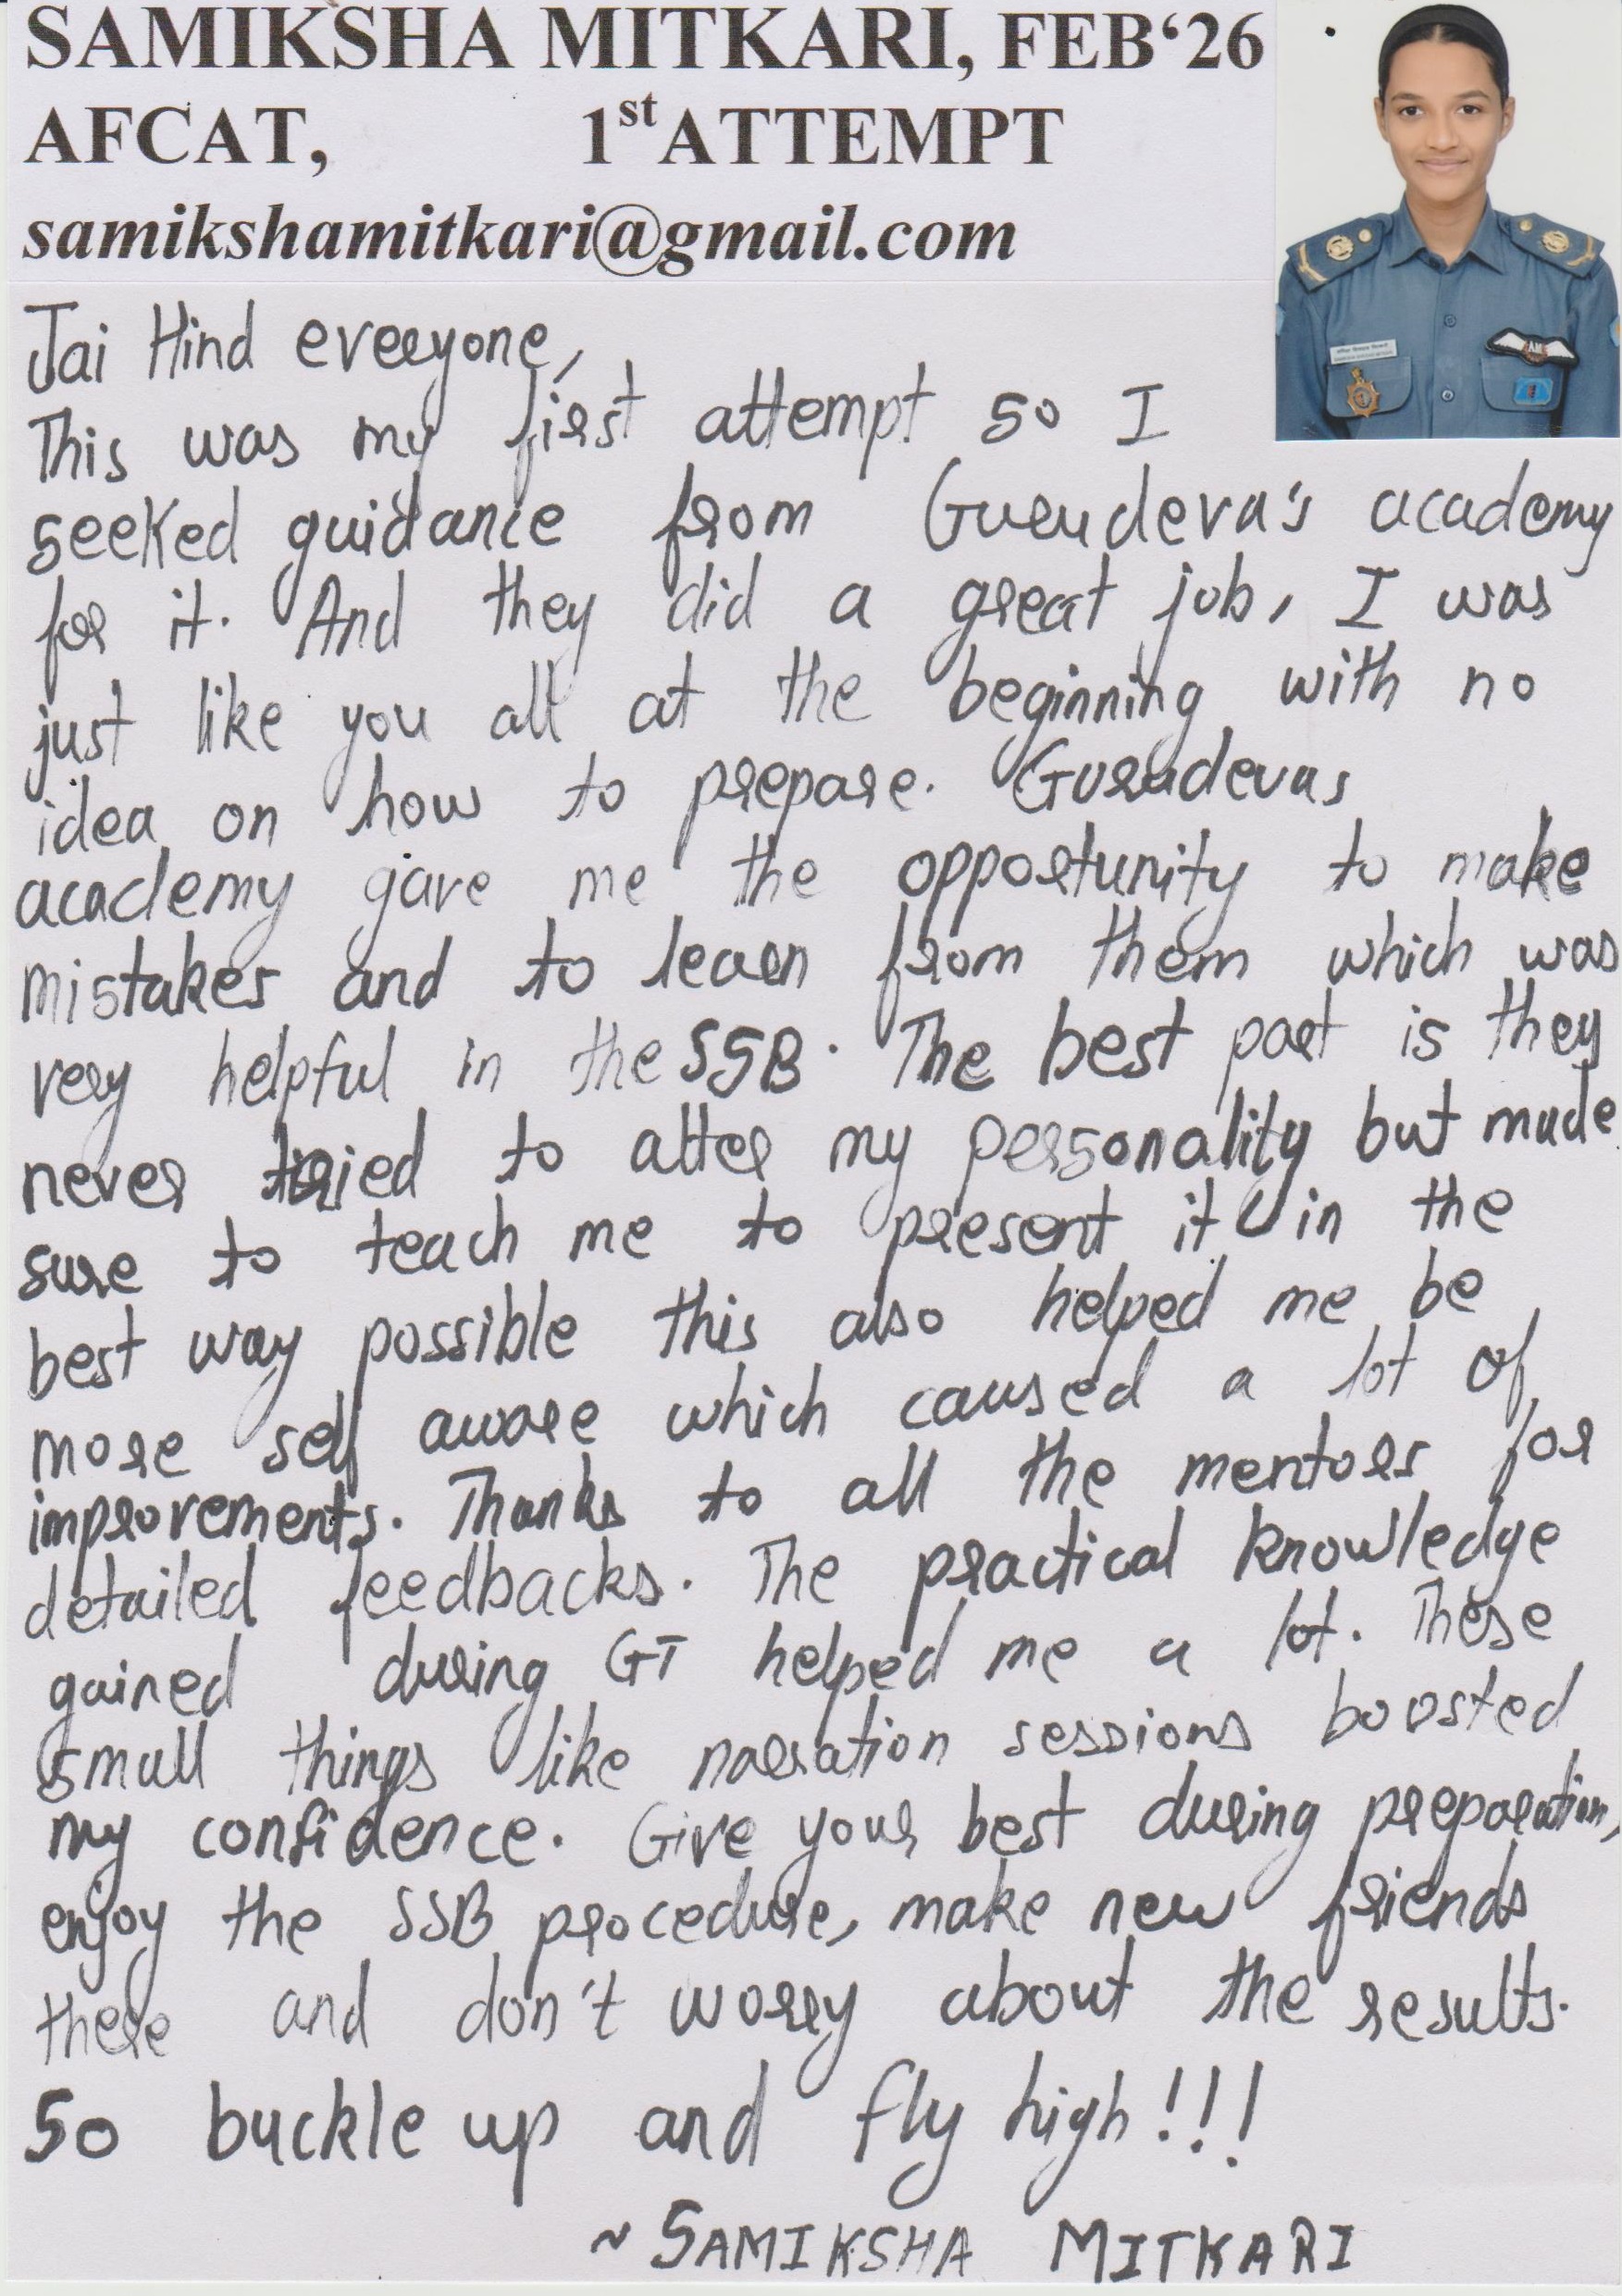 SAMIKSHA MITKARI, FEB‘26
AFCAT, 1st ATTEMPT
samikshamitkari@gmail.com
Jai Hind everyone,
This was my first attempt so I
seeked guidance from Gurudeva's academy
for it. And they did a great job, I was
just like you all at the beginning with no
idea on how to prepare. Gurudevas
academy gave me the opportunity to make
mistakes and to learn from them which was
very helpful in the SSB. The best part is they
never tried to alter my personality but made
sure to teach me to present it in the
best way possible this also helped me be
more self aware which caused a lot of
improvements. Thanks to all the mentors for
detailed feedbacks. The practical knowledge
gained during GT helped me a lot. These
small things like narration sessions boosted
my confidence. Give your best during preparation,
enjoy the SSB procedure, make new friends
there and don't worry about the results.
So buckle up and fly high!!!
~ SAMIKSHA MITKARI